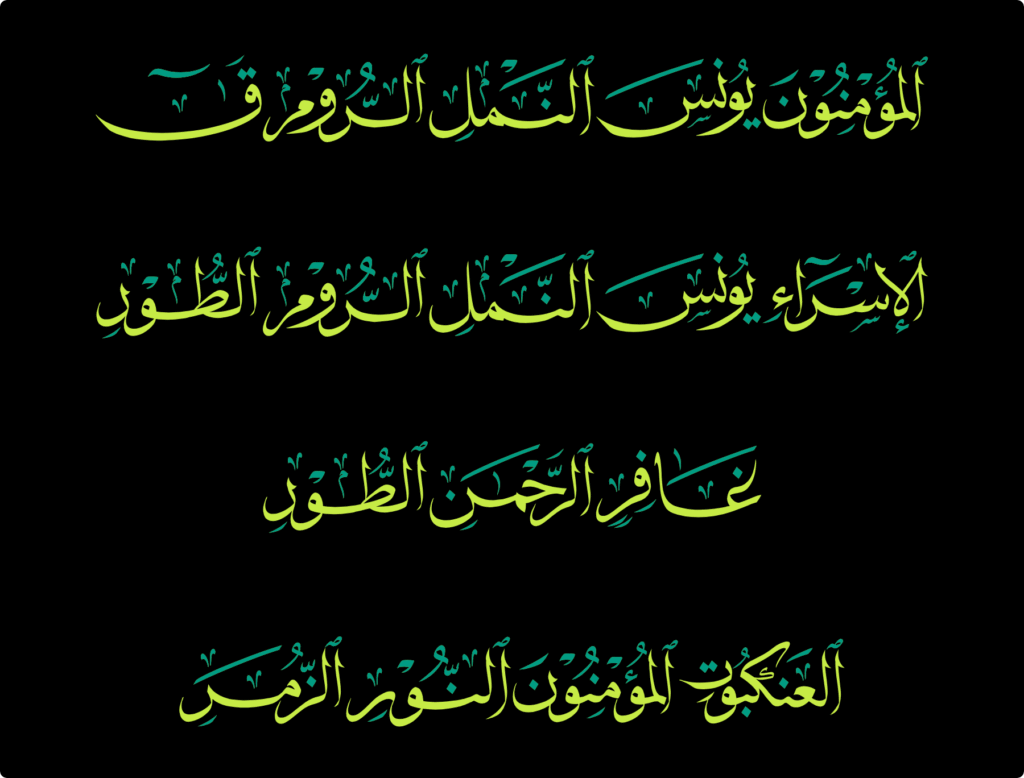 ٱلْمُؤْمِنُوْنَ يُوْنُسَ ٱلنَّمْلِ ٱلرُّوْمِ قَۤ
ٱلْإِسْرَآءِ يُوْنُسَ ٱلنَّمْلِ ٱلرُّوْمِ ٱلطُّوْرِ
غَافِرٍ ٱلرَّحْمٰنِ ٱلطُّوْرِ
ٱلْعَنْكَبُوْتِ ٱلْمُؤْمِنُوْنَ ٱلنُّوْرِ ٱلزُّمَرِ